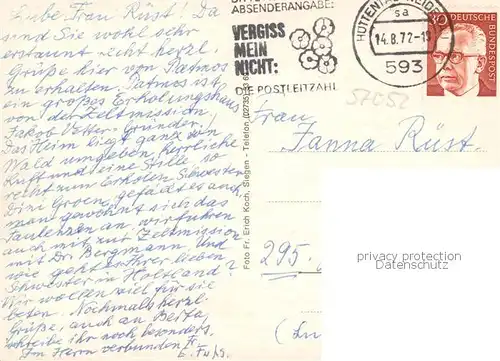 Liebe Frau Rüst! Da
sind Sie wohl sehr
erstaunt recht herzl.
Grüße hier von Patmos
zu erhalten. Patmos ist
ein großes Erholungshaus
von der Zeltmission
Jakob Vetter Gründer.
Das Heim liegt ganz von
Wald umgeben, herrliche
Luft und eine Stille, so
recht zum Erholen. Schwester
Dini Groen, gefällt es auch,
man gewöhnt sich das
an, wir fuhren
auch mit zur Zeltmission
mit Dr. Bergmann. Und
wie geht es Ihrer lieben
Schwester in Holtland?
Wir wollen viel für sie
beten. Nochmals herzl.
Grüße, auch an Berta,
schreibe ihr noch besonders.
Im Herrn verbunden
ABSENDERANGABE:
VERGISS
MEIN
NICHT:
DIE POSTLEITZAHL
HÜTTENTAL-WEIDE
sa
14.8.72-19
593
30
DEUTSCHE
BUNDESPOST
57052
Frau
Fanna Rüst
295
Foto Fr. Erich Koch, Siegen - Telefon (02735)
privacy protection
Datenschutz